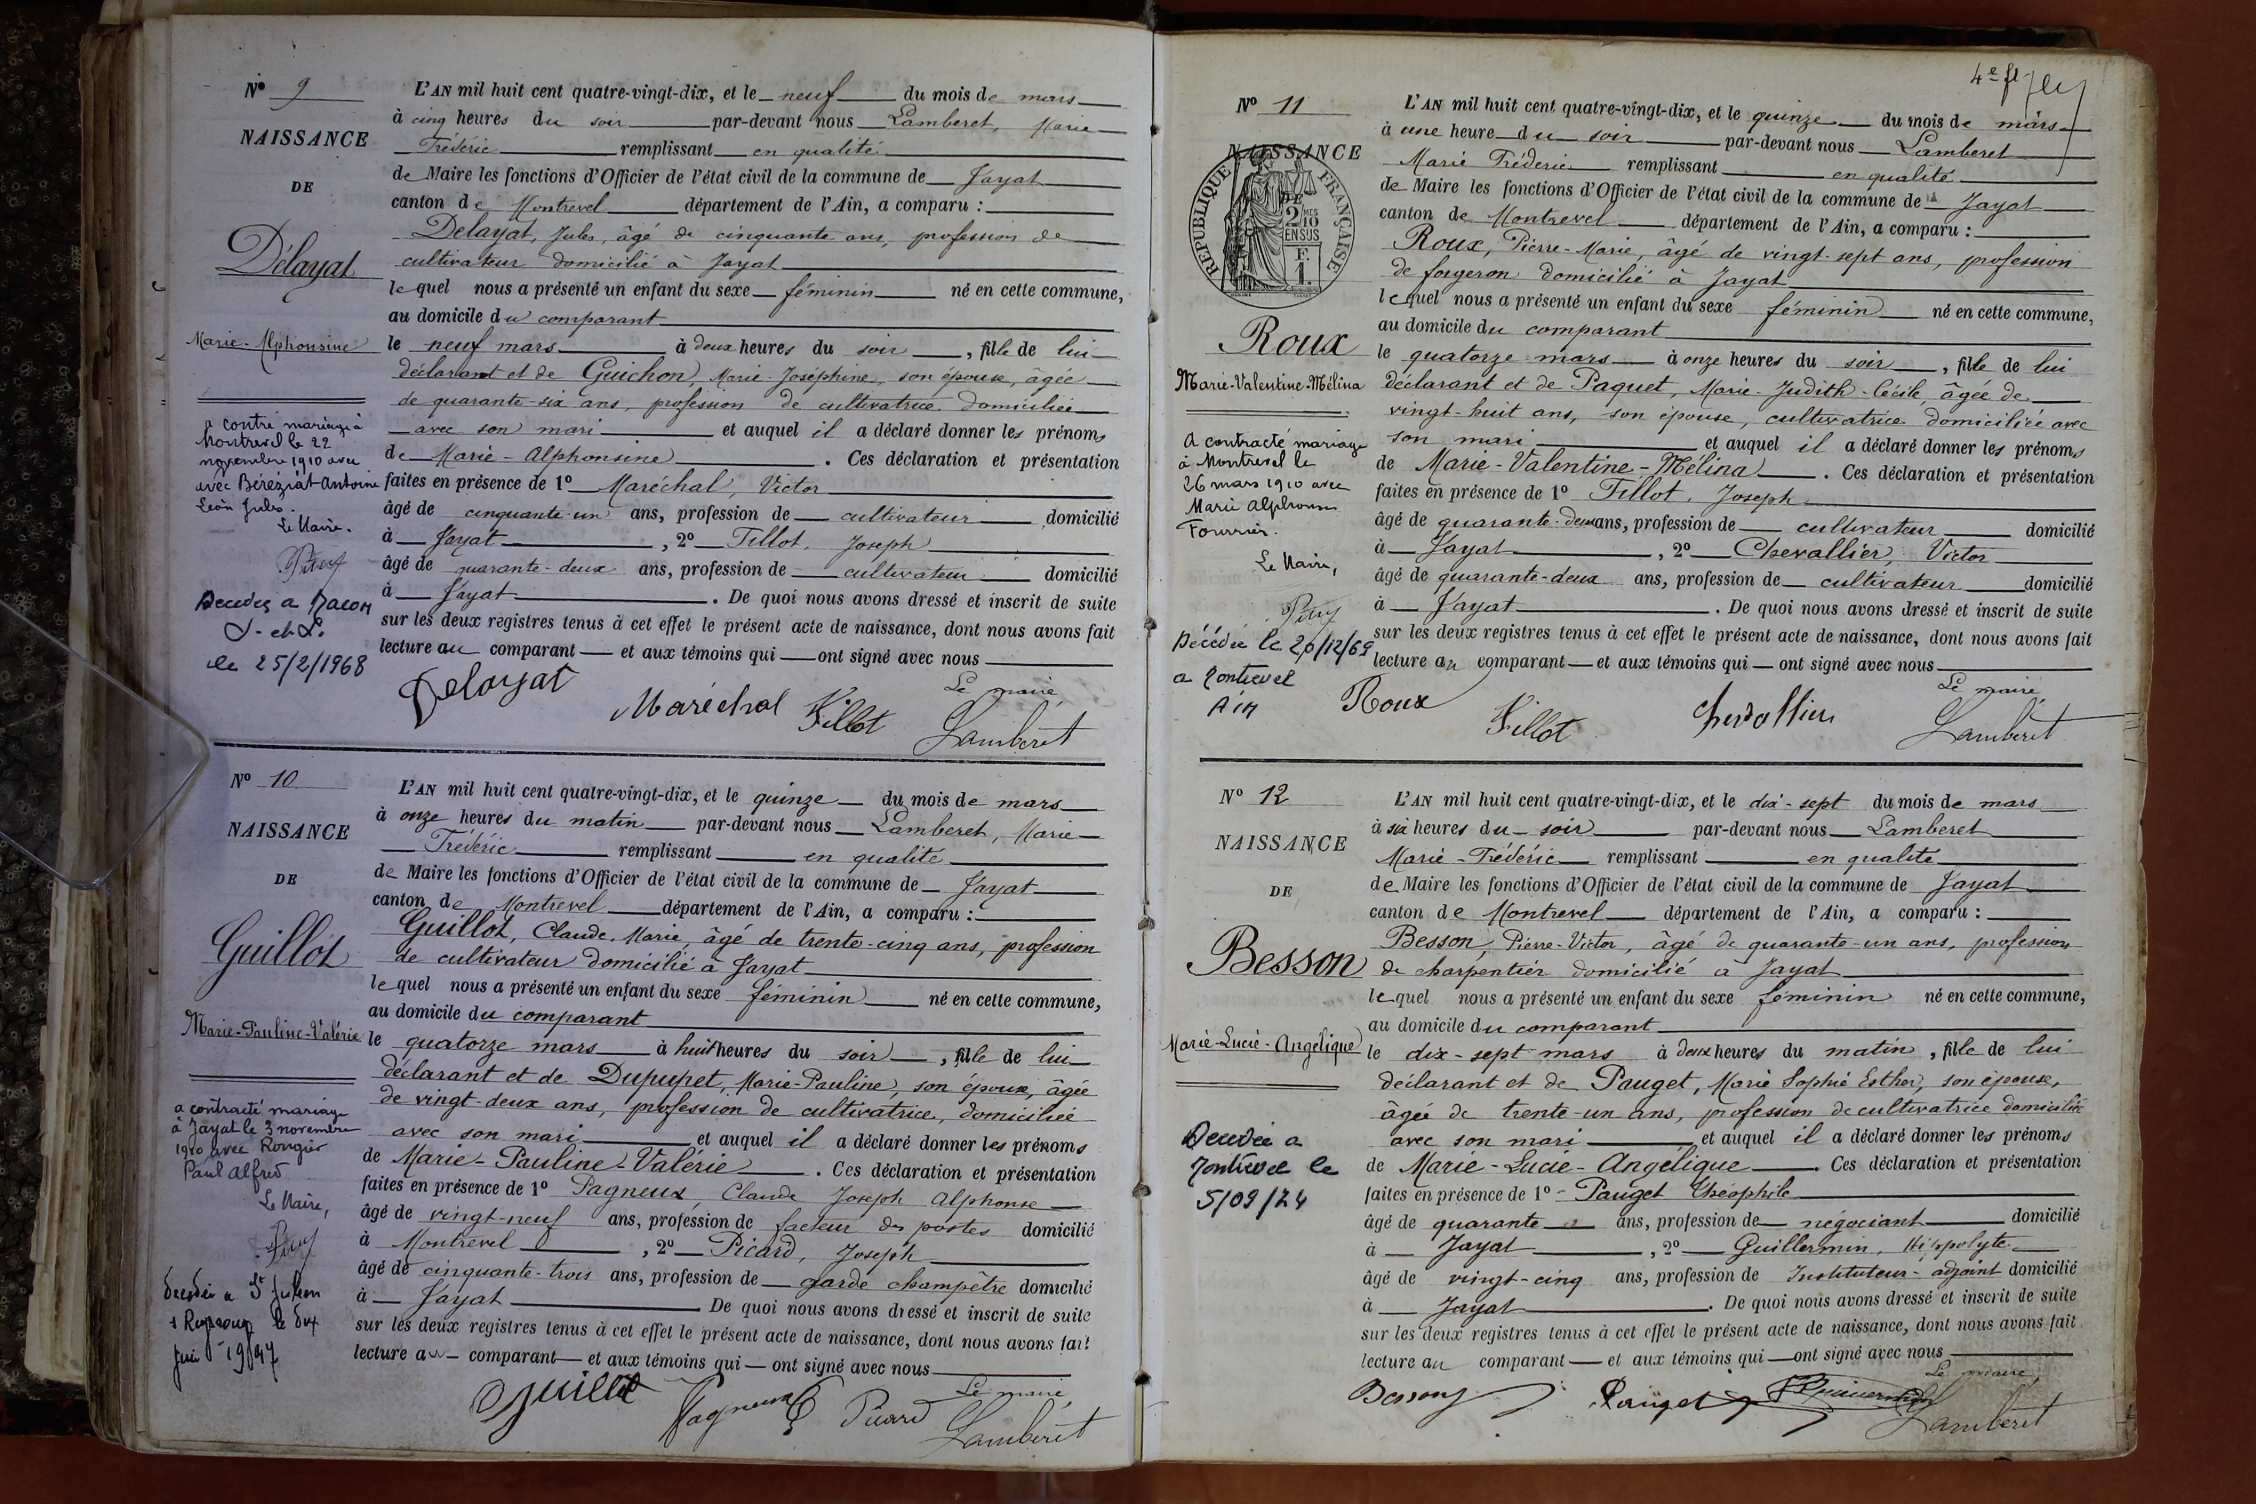 N° 9
NAISSANCE
DE
Délayat
Marie-Alphonsine
a contré mariage à
Montrevel le 22
novembre 1910 avec
avec Béréziat Antoine
Léon Jules.
Le Maire.
Décédée a Macon
S-et-L.
le 25/2/1968
L'AN mil huit cent quatre-vingt-dix, et le neuf du mois de mars
à cinq heures du soir par-devant nous Lamberet, Marie
Frédéric remplissant en qualité
de Maire les fonctions d'Officier de l'état civil de la commune de Jayat
canton de Montrevel département de l'Ain, a comparu :
Delayat, Jules, âgé de cinquante ans, profession de
cultivateur domicilié à Jayat
lequel nous a présenté un enfant du sexe féminin né en cette commune,
au domicile du comparant
le neuf mars à deux heures du soir, fille de lui
déclarant et de Guichon, Marie-Joséphine, son épouse, âgée
de quarante-six ans, profession de cultivatrice domiciliée
avec son mari et auquel il a déclaré donner les prénoms
de Marie-Alphonsine. Ces déclaration et présentation
faites en présence de 1° Maréchal, Victor
âgé de cinquante-un ans, profession de cultivateur domicilié
à Jayat, 2° Tillot, Joseph
âgé de quarante-deux ans, profession de cultivateur domicilié
à Jayat. De quoi nous avons dressé et inscrit de suite
sur les deux registres tenus à cet effet le présent acte de naissance, dont nous avons fait
lecture au comparant et aux témoins qui ont signé avec nous
Le maire
Delayat Maréchal Tillot Lamberet
N° 10
NAISSANCE
DE
Guillot
Marie-Pauline-Valérie
a contracté mariage
à Jayat le 3 novembre
1910 avec Rongier
Paul Alfred
Le Maire,
Décédée a St Julien
s Reyssouze le dix
juin 1947
L'AN mil huit cent quatre-vingt-dix, et le quinze du mois de mars
à onze heures du matin par-devant nous Lamberet, Marie
Frédéric remplissant en qualité
de Maire les fonctions d'Officier de l'état civil de la commune de Jayat
canton de Montrevel département de l'Ain, a comparu :
Guillot, Claude, Marie, âgé de trente-cinq ans, profession
de cultivateur domicilié à Jayat
lequel nous a présenté un enfant du sexe féminin né en cette commune,
au domicile du comparant
le quatorze mars à huit heures du soir, fille de lui
déclarant et de Dupupet, Marie-Pauline, son épouse, âgée
de vingt-deux ans, profession de cultivatrice, domiciliée
avec son mari et auquel il a déclaré donner les prénoms
de Marie-Pauline-Valérie. Ces déclaration et présentation
faites en présence de 1° Pagneux, Claude Joseph Alphonse
âgé de vingt-neuf ans, profession de facteur des postes domicilié
à Montrevel, 2° Picard, Joseph
âgé de cinquante-trois ans, profession de garde champêtre domicilié
à Jayat De quoi nous avons dressé et inscrit de suite
sur les deux registres tenus à cet effet le présent acte de naissance, dont nous avons fait
lecture au comparant et aux témoins qui ont signé avec nous
Le maire,
Guillot Pagneux Picard Lamberet
4e fl
N° 11
NAISSANCE
DE
RÉPUBLIQUE FRANÇAISE
2 MES 1/2
EN SUS
F.
1.
Roux
Marie-Valentine-Mélina
a contracté mariage
à Montrevel le
26 mars 1910 avec
Marie Alphonse
Fourrier.
Le Maire,
Décédée le 20/12/69
a Montrevel
Ain
L'AN mil huit cent quatre-vingt-dix, et le quinze du mois de mars
à une heure du soir par-devant nous Lamberet
Marie Fréderic remplissant en qualité
de Maire les fonctions d'Officier de l'état civil de la commune de Jayat
canton de Montrevel département de l'Ain, a comparu :
Roux, Pierre-Marie, âgé de vingt-sept ans, profession
de forgeron domicilié à Jayat
lequel nous a présenté un enfant du sexe féminin né en cette commune,
au domicile du comparant
le quatorze mars à onze heures du soir, fille de lui
déclarant et de Paquet, Marie-Judith-Cécile, âgée de
vingt-huit ans, son épouse, cultivatrice domiciliée avec
son mari et auquel il a déclaré donner les prénoms
de Marie-Valentine-Mélina. Ces déclaration et présentation
faites en présence de 1° Tillot, Joseph
âgé de quarante-deux ans, profession de cultivateur domicilié
à Jayat, 2° Chevallier, Victor
âgé de quarante-deux ans, profession de cultivateur domicilié
à Jayat. De quoi nous avons dressé et inscrit de suite
sur les deux registres tenus à cet effet le présent acte de naissance, dont nous avons fait
lecture au comparant et aux témoins qui ont signé avec nous
Le maire
Roux Tillot Chevallier Lamberet
N° 12
NAISSANCE
DE
Besson
Marie-Lucie-Angélique
Décédée a
Montrevel le
5/09/74
L'AN mil huit cent quatre-vingt-dix, et le dix-sept du mois de mars
à six heures du soir par-devant nous Lamberet
Marie-Frédéric remplissant en qualité
de Maire les fonctions d'Officier de l'état civil de la commune de Jayat
canton de Montrevel département de l'Ain, a comparu :
Besson, Pierre-Victor, âgé de quarante-un ans, profession
de charpentier domicilié à Jayat
lequel nous a présenté un enfant du sexe féminin né en cette commune,
au domicile du comparant
le dix-sept mars à deux heures du matin, fille de lui
déclarant et de Pauget, Marie Sophie Esther, son épouse,
âgée de trente-un ans, profession de cultivatrice domiciliée
avec son mari et auquel il a déclaré donner les prénoms
de Marie-Lucie-Angélique. Ces déclaration et présentation
faites en présence de 1° Pauget Théophile
âgé de quarante ans, profession de négociant domicilié
à Jayat, 2° Guillermin, Hippolyte
âgé de vingt-cinq ans, profession de Instituteur-adjoint domicilié
à Jayat. De quoi nous avons dressé et inscrit de suite
sur les deux registres tenus à cet effet le présent acte de naissance, dont nous avons fait
lecture au comparant et aux témoins qui ont signé avec nous
Le maire,
Besson Pauget Guillermin Lamberet